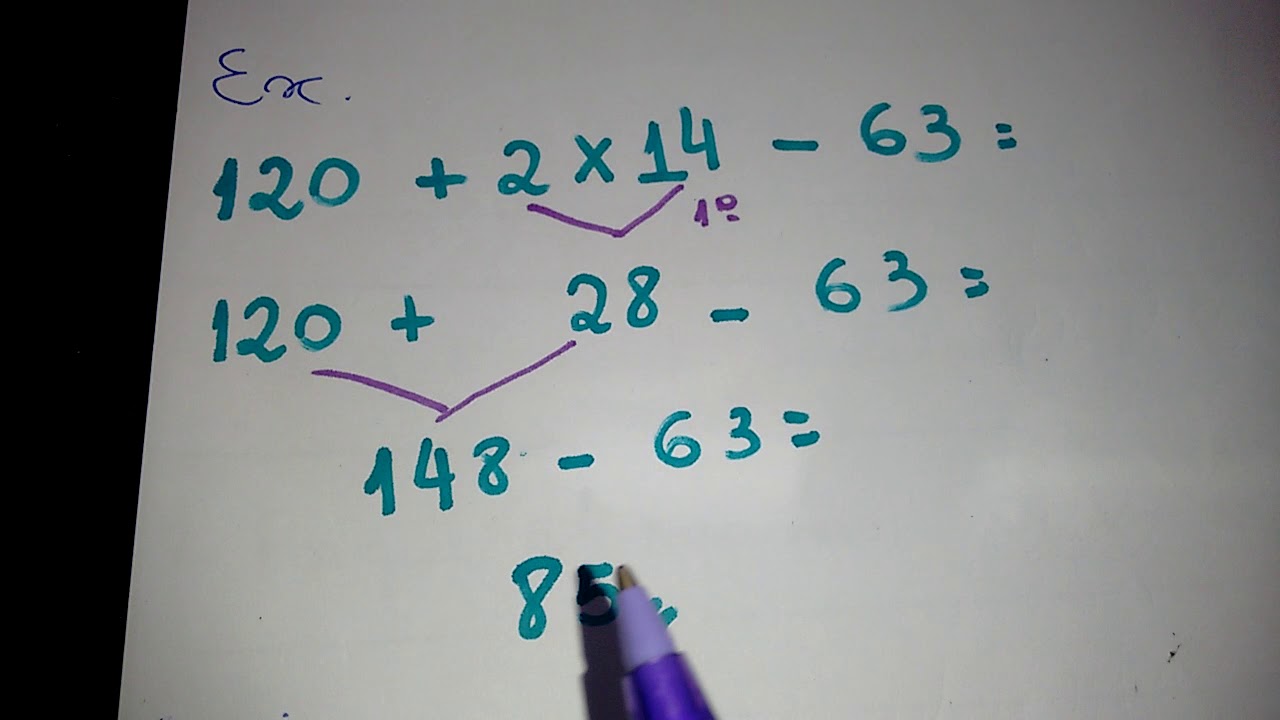 Ex.
120 + 2 x 14 - 63 =
1º
120 + 28 - 63 =
148 - 63 =
85